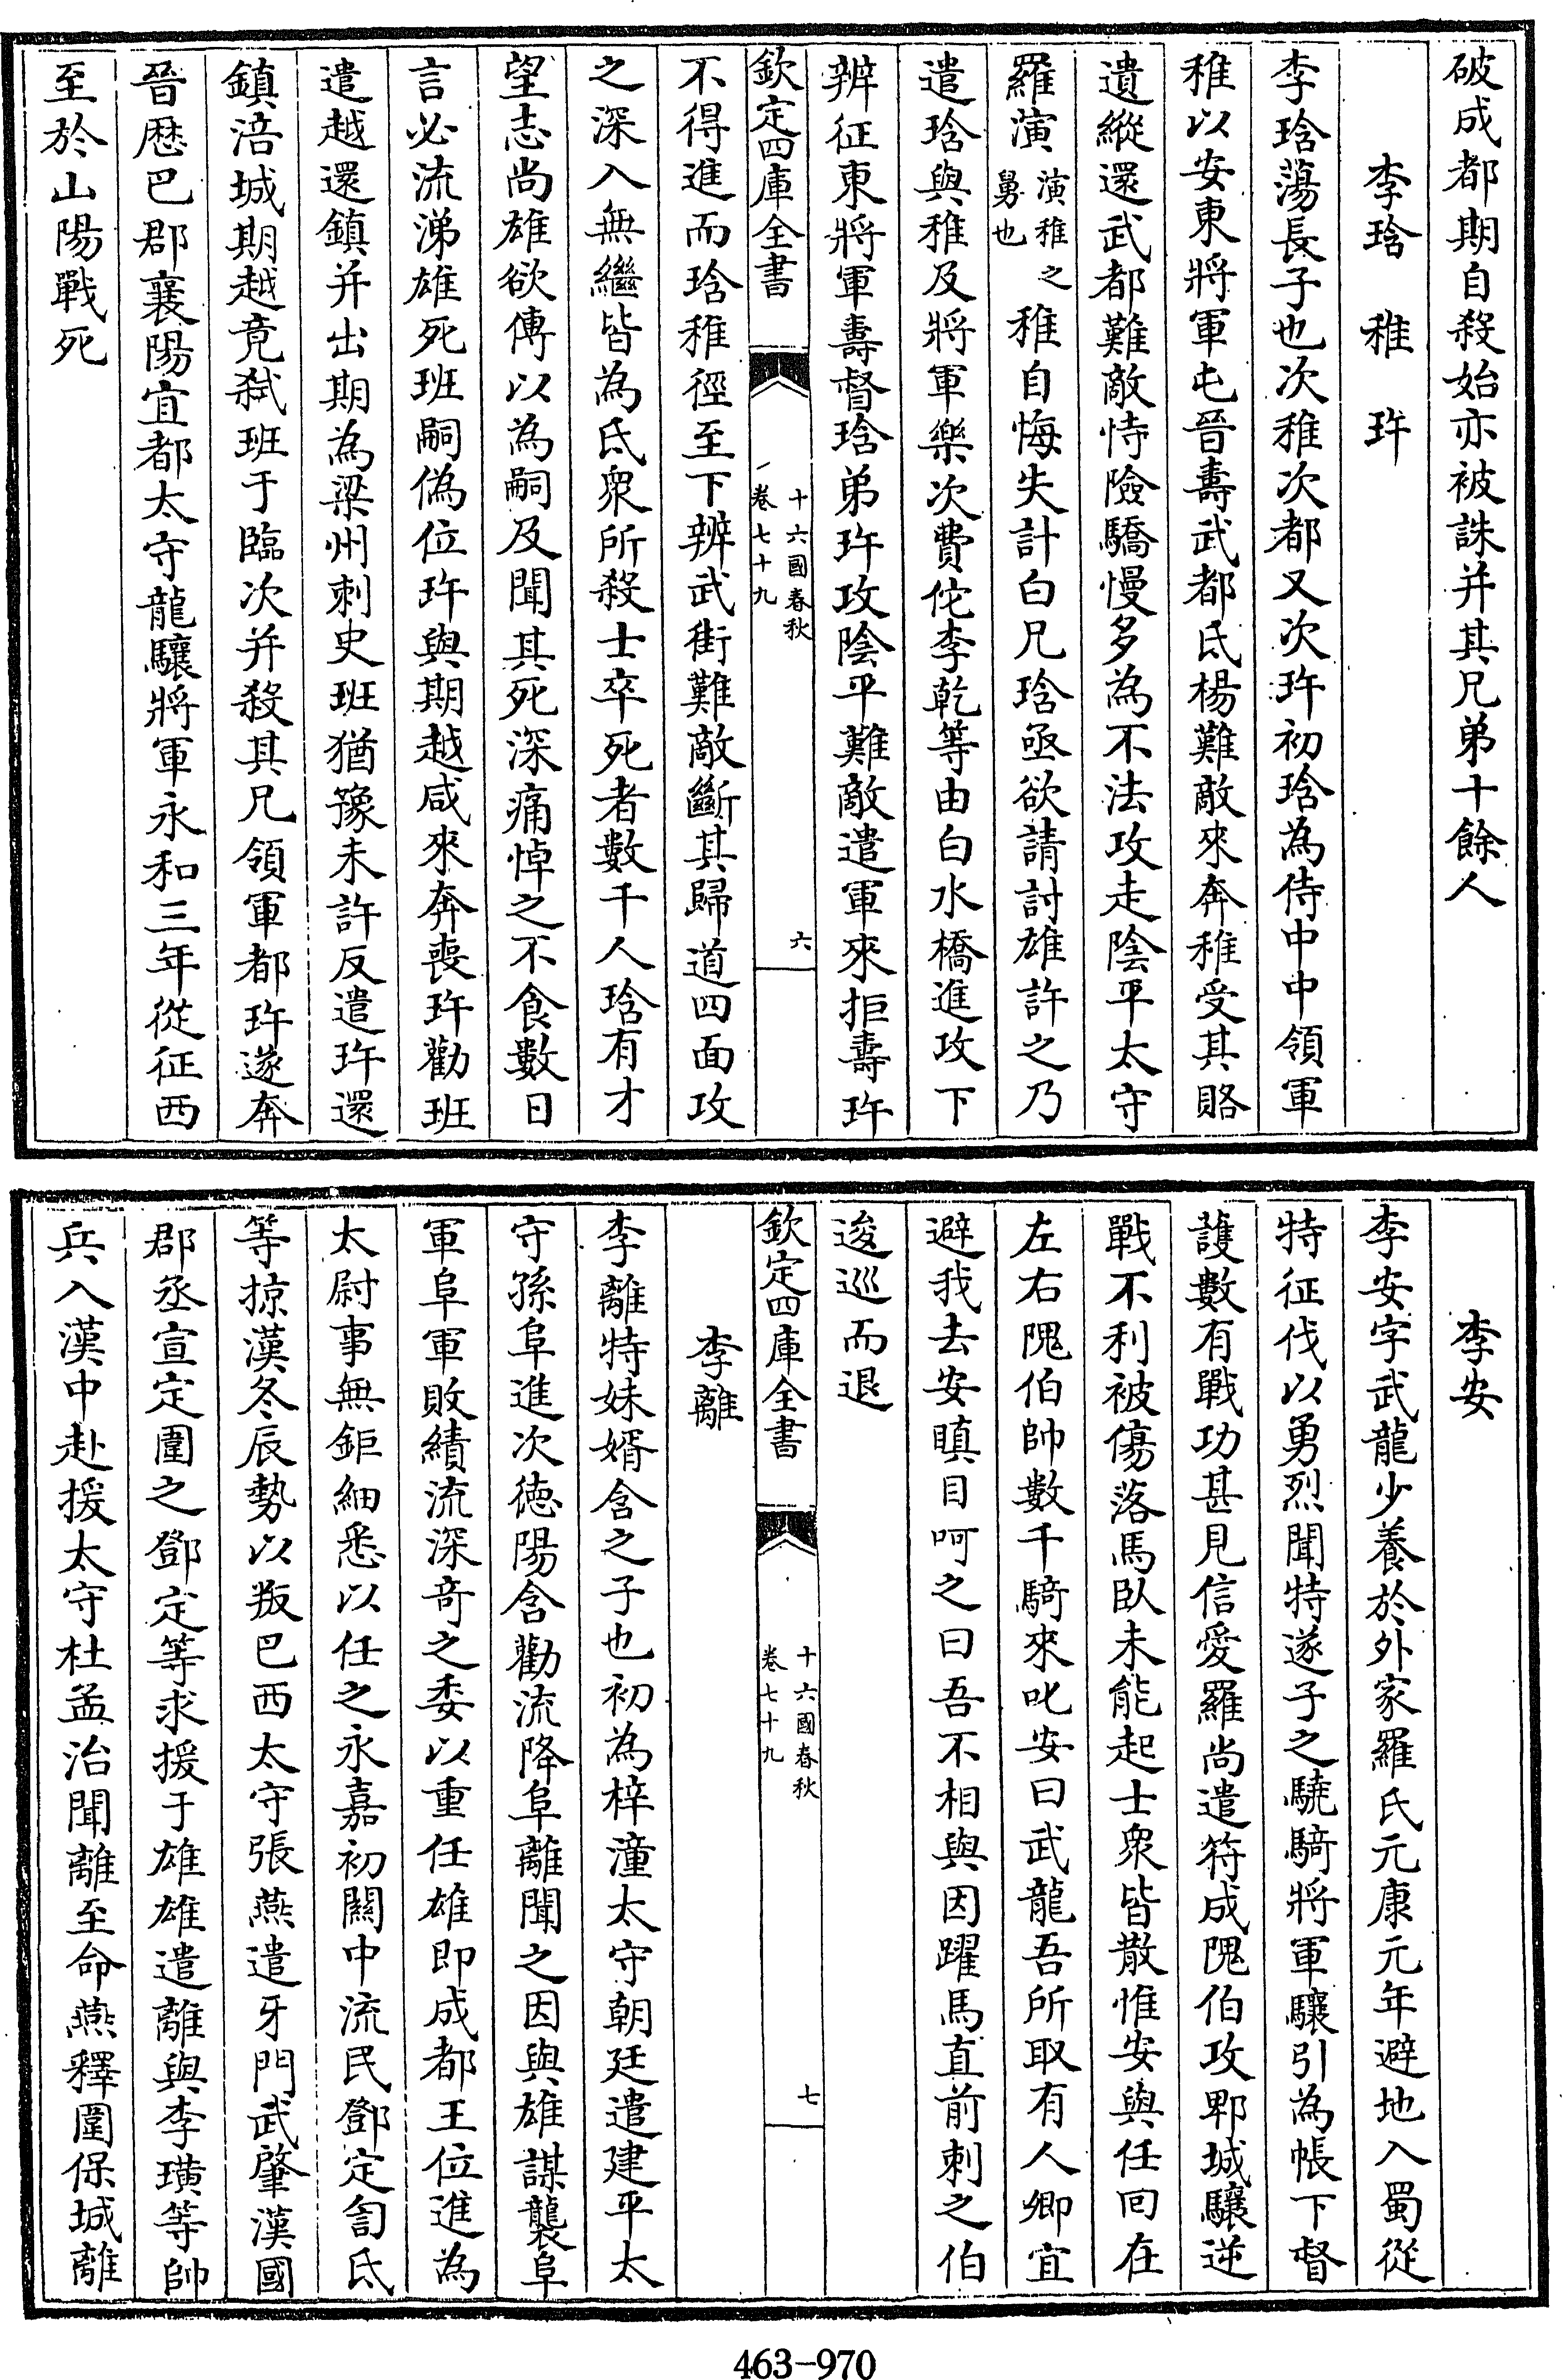 破成都期自殺始亦被誅并其兄弟十餘人
李琀　稚　玝
李琀蕩長子也次稚次都又次玝初琀為侍中中領軍
稚以安東將軍屯晉壽武都氐楊難敵來奔稚受其賂
遺縱還武都難敵恃險驕慢多為不法攻走陰平太守
羅演演稚之舅也稚自悔失計白兄琀亟欲請討雄許之乃
遣琀與稚及將軍樂次費佗李乾等由白水橋進攻下
辨征東將軍壽督琀弟玝攻陰平難敵遣軍來拒壽玝
欽定四庫全書
十六國春秋
卷七十九
六
不得進而琀稚徑至下辨武街難敵斷其歸道四面攻
之深入無繼皆為氐衆所殺士卒死者數千人琀有才
望志尚雄欲傳以為嗣及聞其死深痛悼之不食數日
言必流涕雄死班嗣偽位玝與期越咸來奔喪玝勸班
遣越還鎮并出期為梁州刺史班猶豫未許反遣玝還
鎮涪城期越竟弒班于臨次并殺其兄領軍都玝遂奔
晉歴巴郡襄陽宜都太守龍驤將軍永和三年從征西
至於山陽戰死
李安
李安字武龍少養於外家羅氏元康元年避地入蜀從
特征伐以勇烈聞特遂子之驍騎將軍驤引為帳下督
護數有戰功甚見信愛羅尚遣符成隗伯攻郫城驤逆
戰不利被傷落馬臥未能起士衆皆散惟安與任回在
左右隗伯帥數千騎來叱安曰武龍吾所取有人卿宜
避我去安瞋目呵之曰吾不相與因躍馬直前刺之伯
逡巡而退
欽定四庫全書
十六國春秋
卷七十九
七
李離
李離特妹婿含之子也初為梓潼太守朝廷遣建平太
守孫阜進次德陽含勸流降阜離聞之因與雄謀襲阜
軍阜軍敗績流深奇之委以重任雄即成都王位進為
太尉事無鉅細悉以任之永嘉初關中流民鄧定訇氐
等掠漢冬辰勢以叛巴西太守張燕遣牙門武肇漢國
郡丞宣定圍之鄧定等求援于雄雄遣離與李璜等帥
兵入漢中赴援太守杜孟治聞離至命燕釋圍保城離
463-970